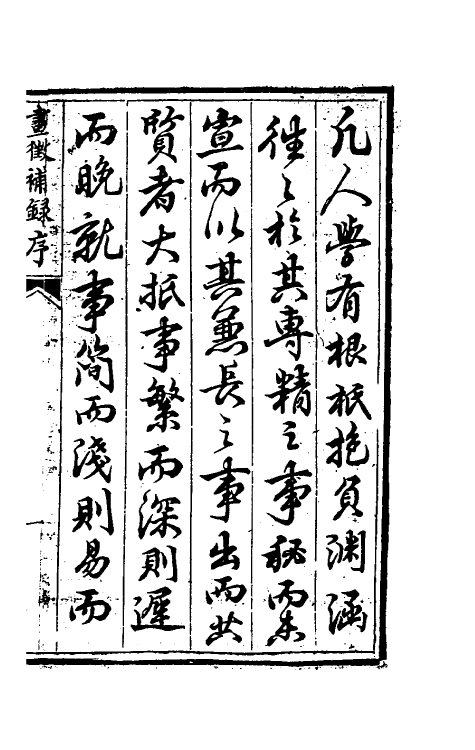 凡人學有根柢抱負淵涵
往々於其專精之事秘而未
宣而以其兼長之事出而共
賢者大抵事繁而深則遲
而晚就事簡而淺則易而
畫徵補錄序
一